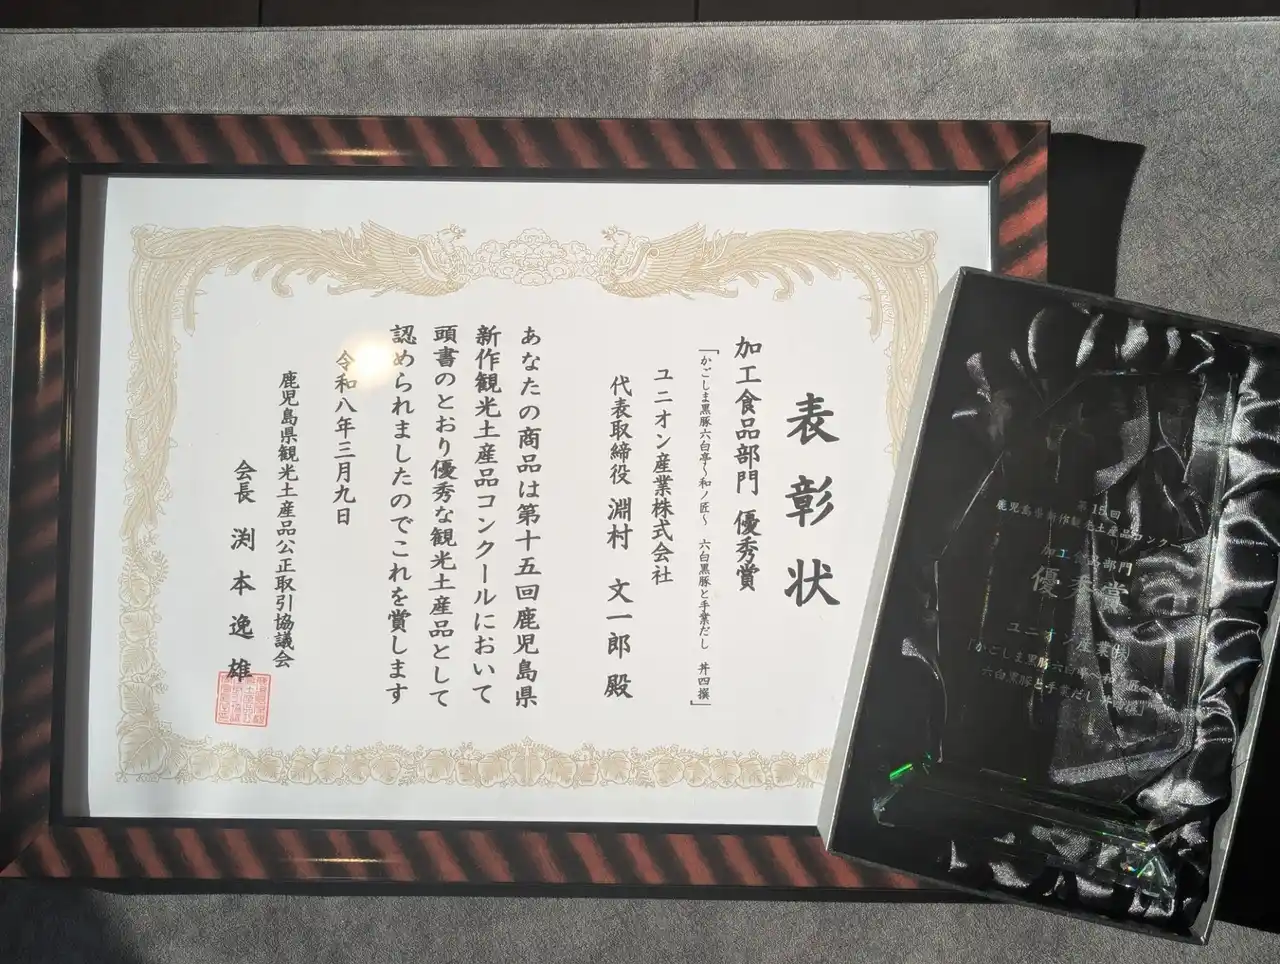 表彰状
加工食品部門 優秀賞
「かごしま黒豚六白亭～和ノ匠～ 六白黒豚と手業だし 丼四撰」
ユニオン産業株式会社
代表取締役 淵村 文一郎 殿
あなたの商品は第十五回鹿児島県
新作観光土産品コンクールにおいて
頭書のとおり優秀な観光土産品として
認められましたのでこれを賞します
令和八年三月九日
鹿児島県観光土産品公正取引協議会
会長 渕本逸雄
第15回
鹿児島県新作観光土産品コンクール
加工食品部門
優秀賞
ユニオン産業㈱
「かごしま黒豚六白亭～和ノ匠～
六白黒豚と手業だし 丼四撰」